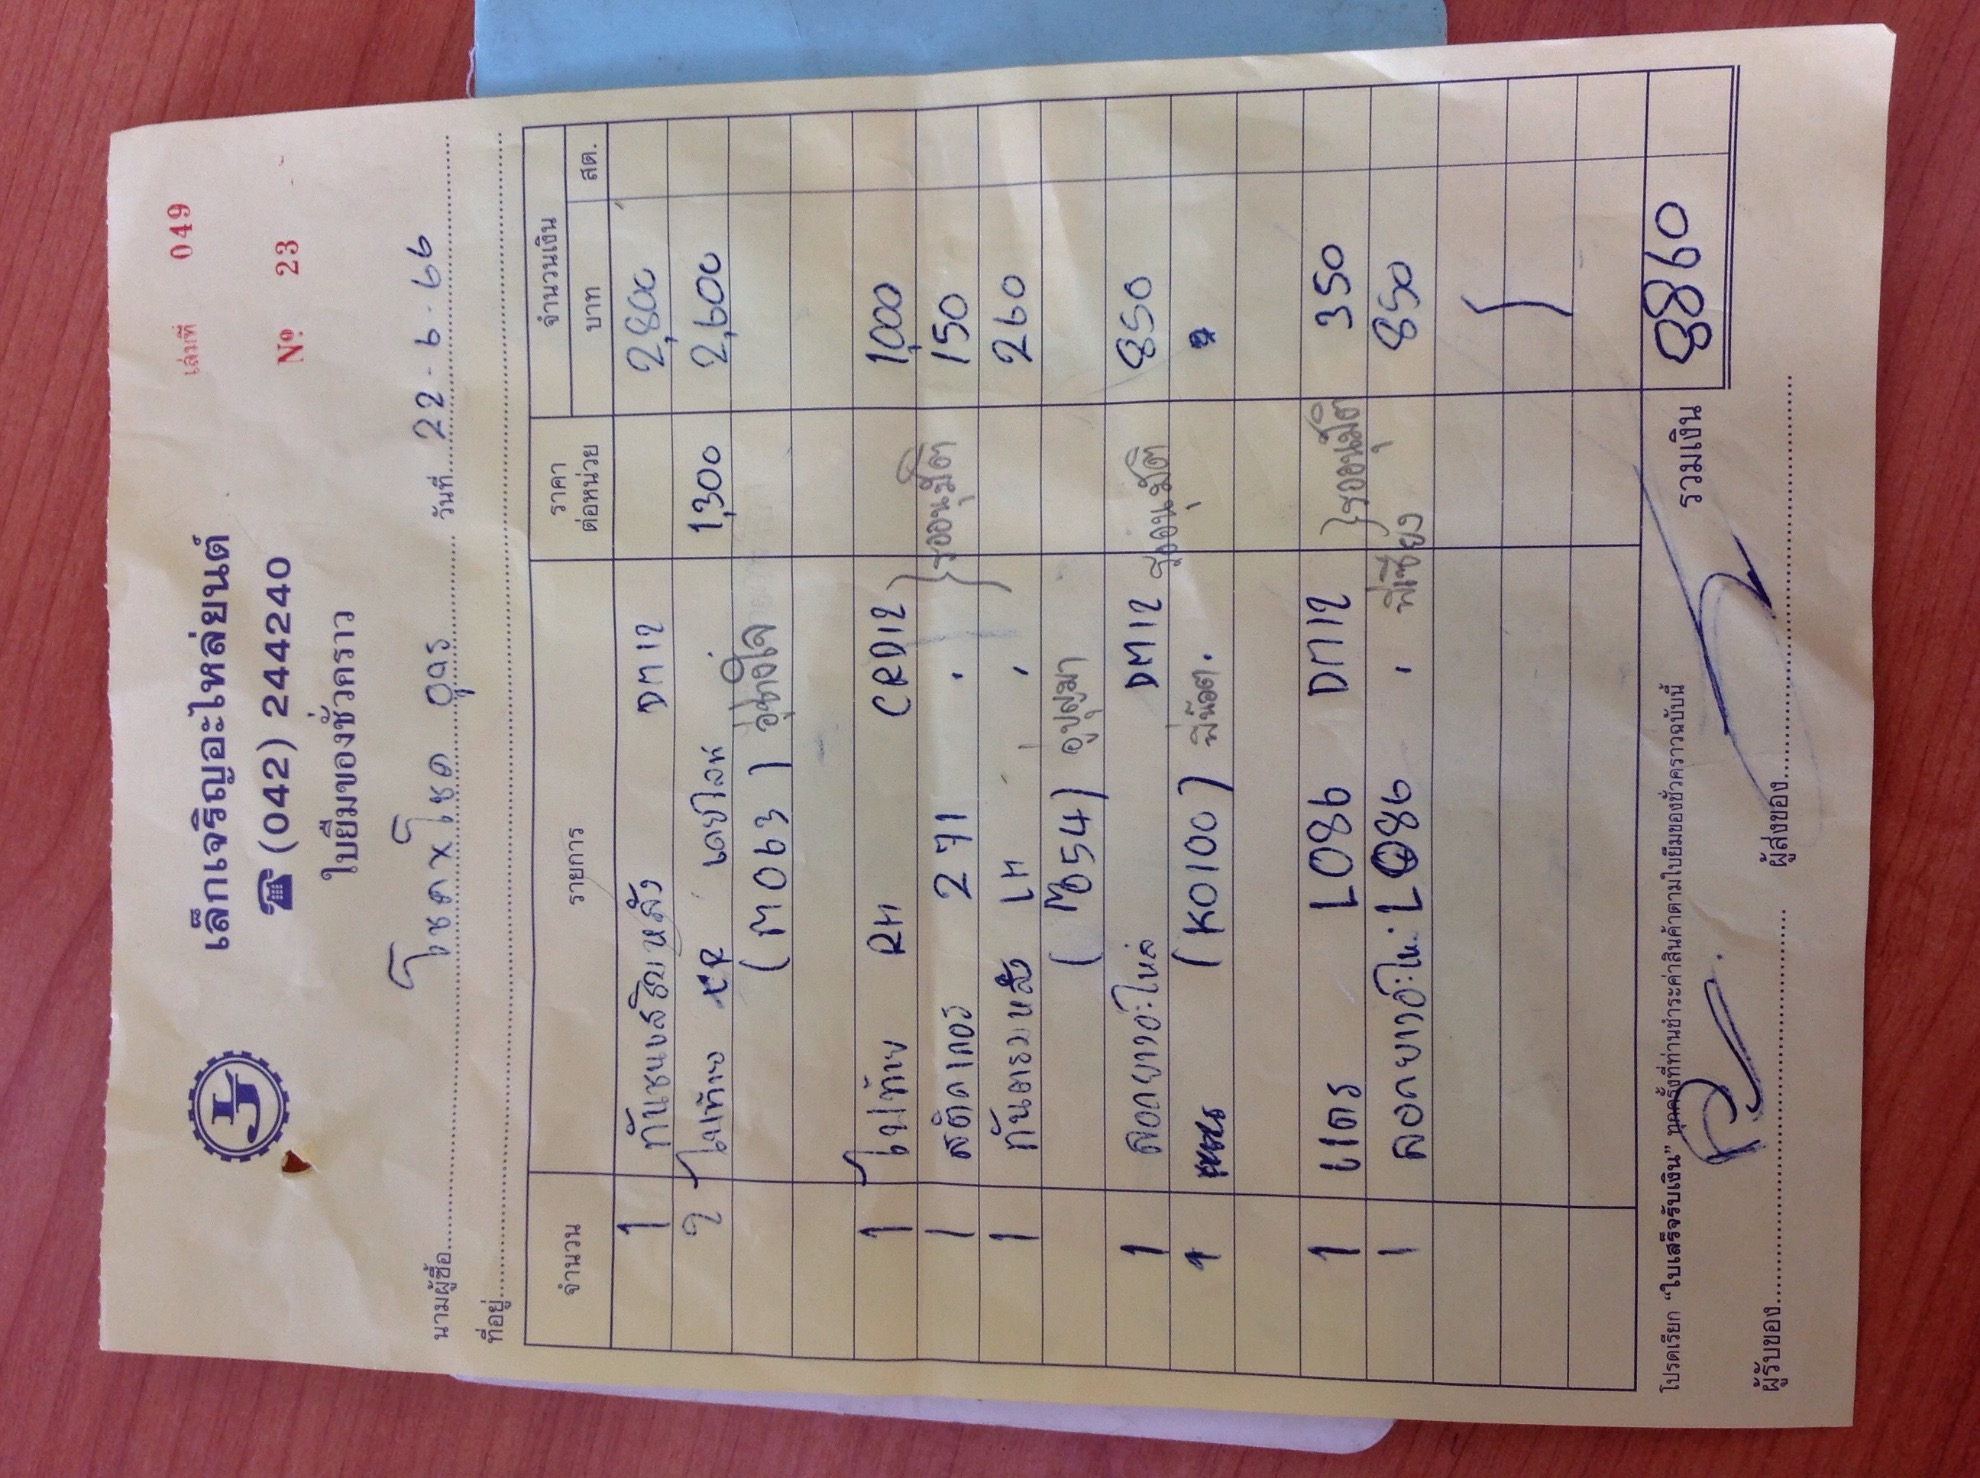 เล่มที่ 049
เล็กเจริญอะไหล่ยนต์
☎ (042) 244240
Nº 23
ใบยืมของชั่วคราว
LJ
นามผู้ซื้อ โชคxโชค อุดร วันที่ 22-6-66
ที่อยู่
จำนวน รายการ ราคาต่อหน่วย จำนวนเงิน
บาท สต.
1 กันชนเสริมหลัง DM12 2,800
2 ไฟท้าย 1,300 2,600
(M063) อู่ช่างใจ
1 ไฟท้าย RH CRD12 1,000
1 สติคเกอร์ 271 . } รออนุมัติ 150
1 หลัง LH 260
654)
1 ลอกยางอะไหล่ DM12 รออนุมัติ 850
1 (K0100) พี่น๊อต.
1 แตร L086 DM12 } รออนุมัติ 350
1 ลอกยางอะไห. L086 . 850
รวมเงิน 8860
โปรดเรียก "ใบเสร็จรับเงิน" ทุกครั้งที่ท่านชำระค่าสินค้าตามใบยืมของชั่วคราวฉบับนี้
ผู้รับของ ผู้ส่งของ